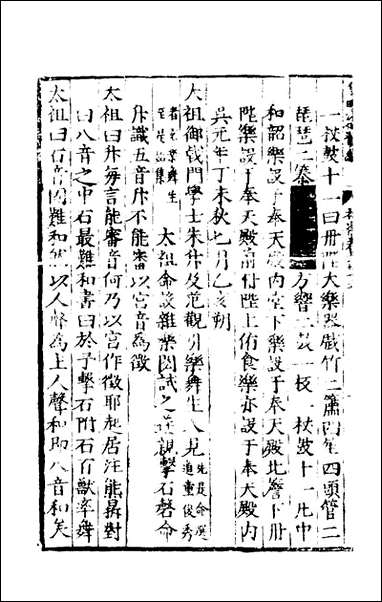 一杖鼓十一曰丹陛大樂器戲竹二簫四笙四頭管二
琵琶二𥱧 方響二 一杖鼓十一凡中
和韶樂設于奉天殿內堂下樂設于奉天殿北簷下丹
陛樂設于奉天殿前丹陛上侑食樂亦設于奉天殿內
吳元年丁未秋七月乙亥朔
太祖御戟門學士朱升及范觀引樂舞生入見先是命選
道童俊秀
者充樂舞生
至是始集 太祖命設雅樂閱試之遂親擊石磬命
升識五音升不能審以宮音為徵
太祖曰升每言能審音何乃以宮作徵耶起居注熊鼎對
曰八音之中石最難和書曰於予擊石附石百獸率舞
太祖曰石音固難和然以人聲為主人聲和即八音和矣